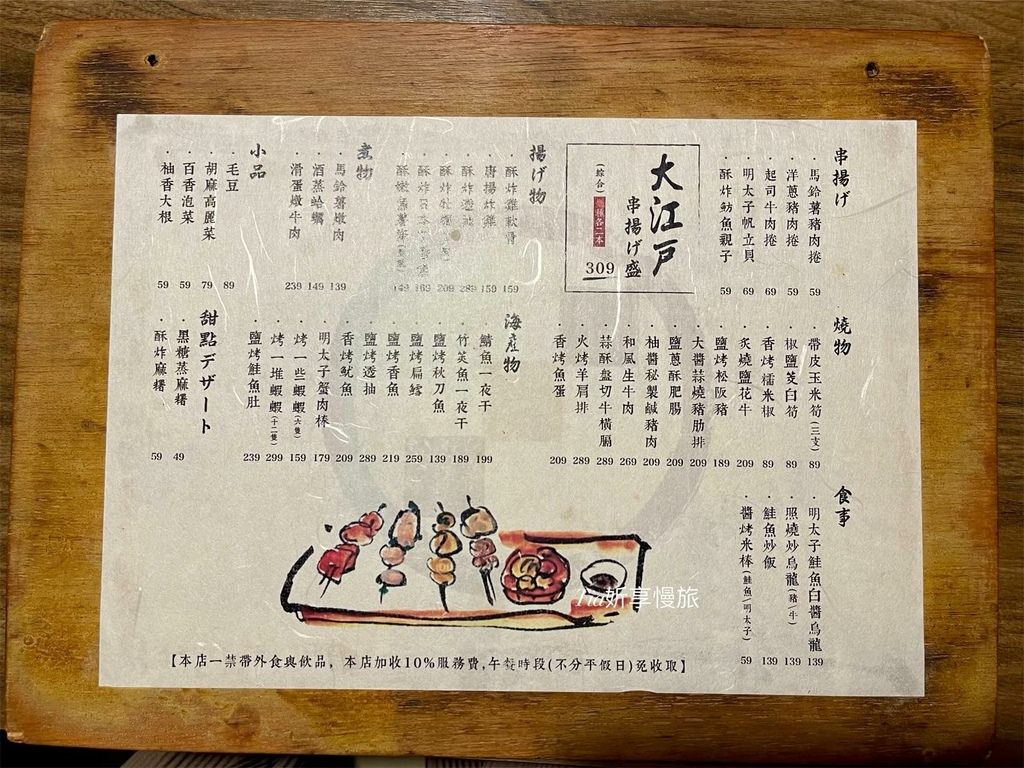 串揚げ
・馬鈴薯豬肉捲 59
・洋蔥豬肉捲 59
・起司牛肉捲 69
・明太子帆立貝 69
・酥炸魴魚親子 59
大江戶
串揚げ盛
(綜合)
309
揚げ物
・酥炸雞軟骨 159
・唐揚炸雞 159
・酥炸透抽 289
・酥炸牡蠣 209
169
149
煮物
・馬鈴薯燉肉 139
・酒蒸蛤蠣 149
・滑蛋燉牛肉 239
小品
・毛豆 89
・胡麻高麗菜 79
・百香泡菜 59
・柚香大根 59
燒物
・帶皮玉米筍(三支) 89
・椒鹽茭白筍 89
・香烤糯米椒 89
・炙燒鹽花牛 209
・鹽烤松阪豬 189
・大醬蒜燒豬肋排 209
・鹽蔥酥肥腸 209
・柚醬秘製鹹豬肉 209
・和風生牛肉 269
・蒜酥盤切牛橫膈 289
・火烤羊肩排 289
・香烤魚蛋 209
海產物
・鯖魚一夜干 199
・竹筴魚一夜干 189
・鹽烤秋刀魚 139
・鹽烤扁鱈 259
・鹽烤香魚 219
・鹽烤透抽 289
・香烤魷魚 209
・明太子蟹肉棒 179
・烤一些蝦蝦(六隻) 159
・烤一堆蝦蝦(十二隻) 299
・鹽烤鮭魚肚 239
甜點デザート
・黑糖蒸麻糬 49
・酥炸麻糬 59
食事
・明太子鮭魚白醬烏龍 139
・照燒炒烏龍(豬/牛) 139
・鮭魚炒飯 139
・醬烤米棒(鮭魚/明太子) 59
Tia妡享慢旅
【本店一禁帶外食與飲品, 本店加收10%服務費,午餐時段(不分平假日)免收取】